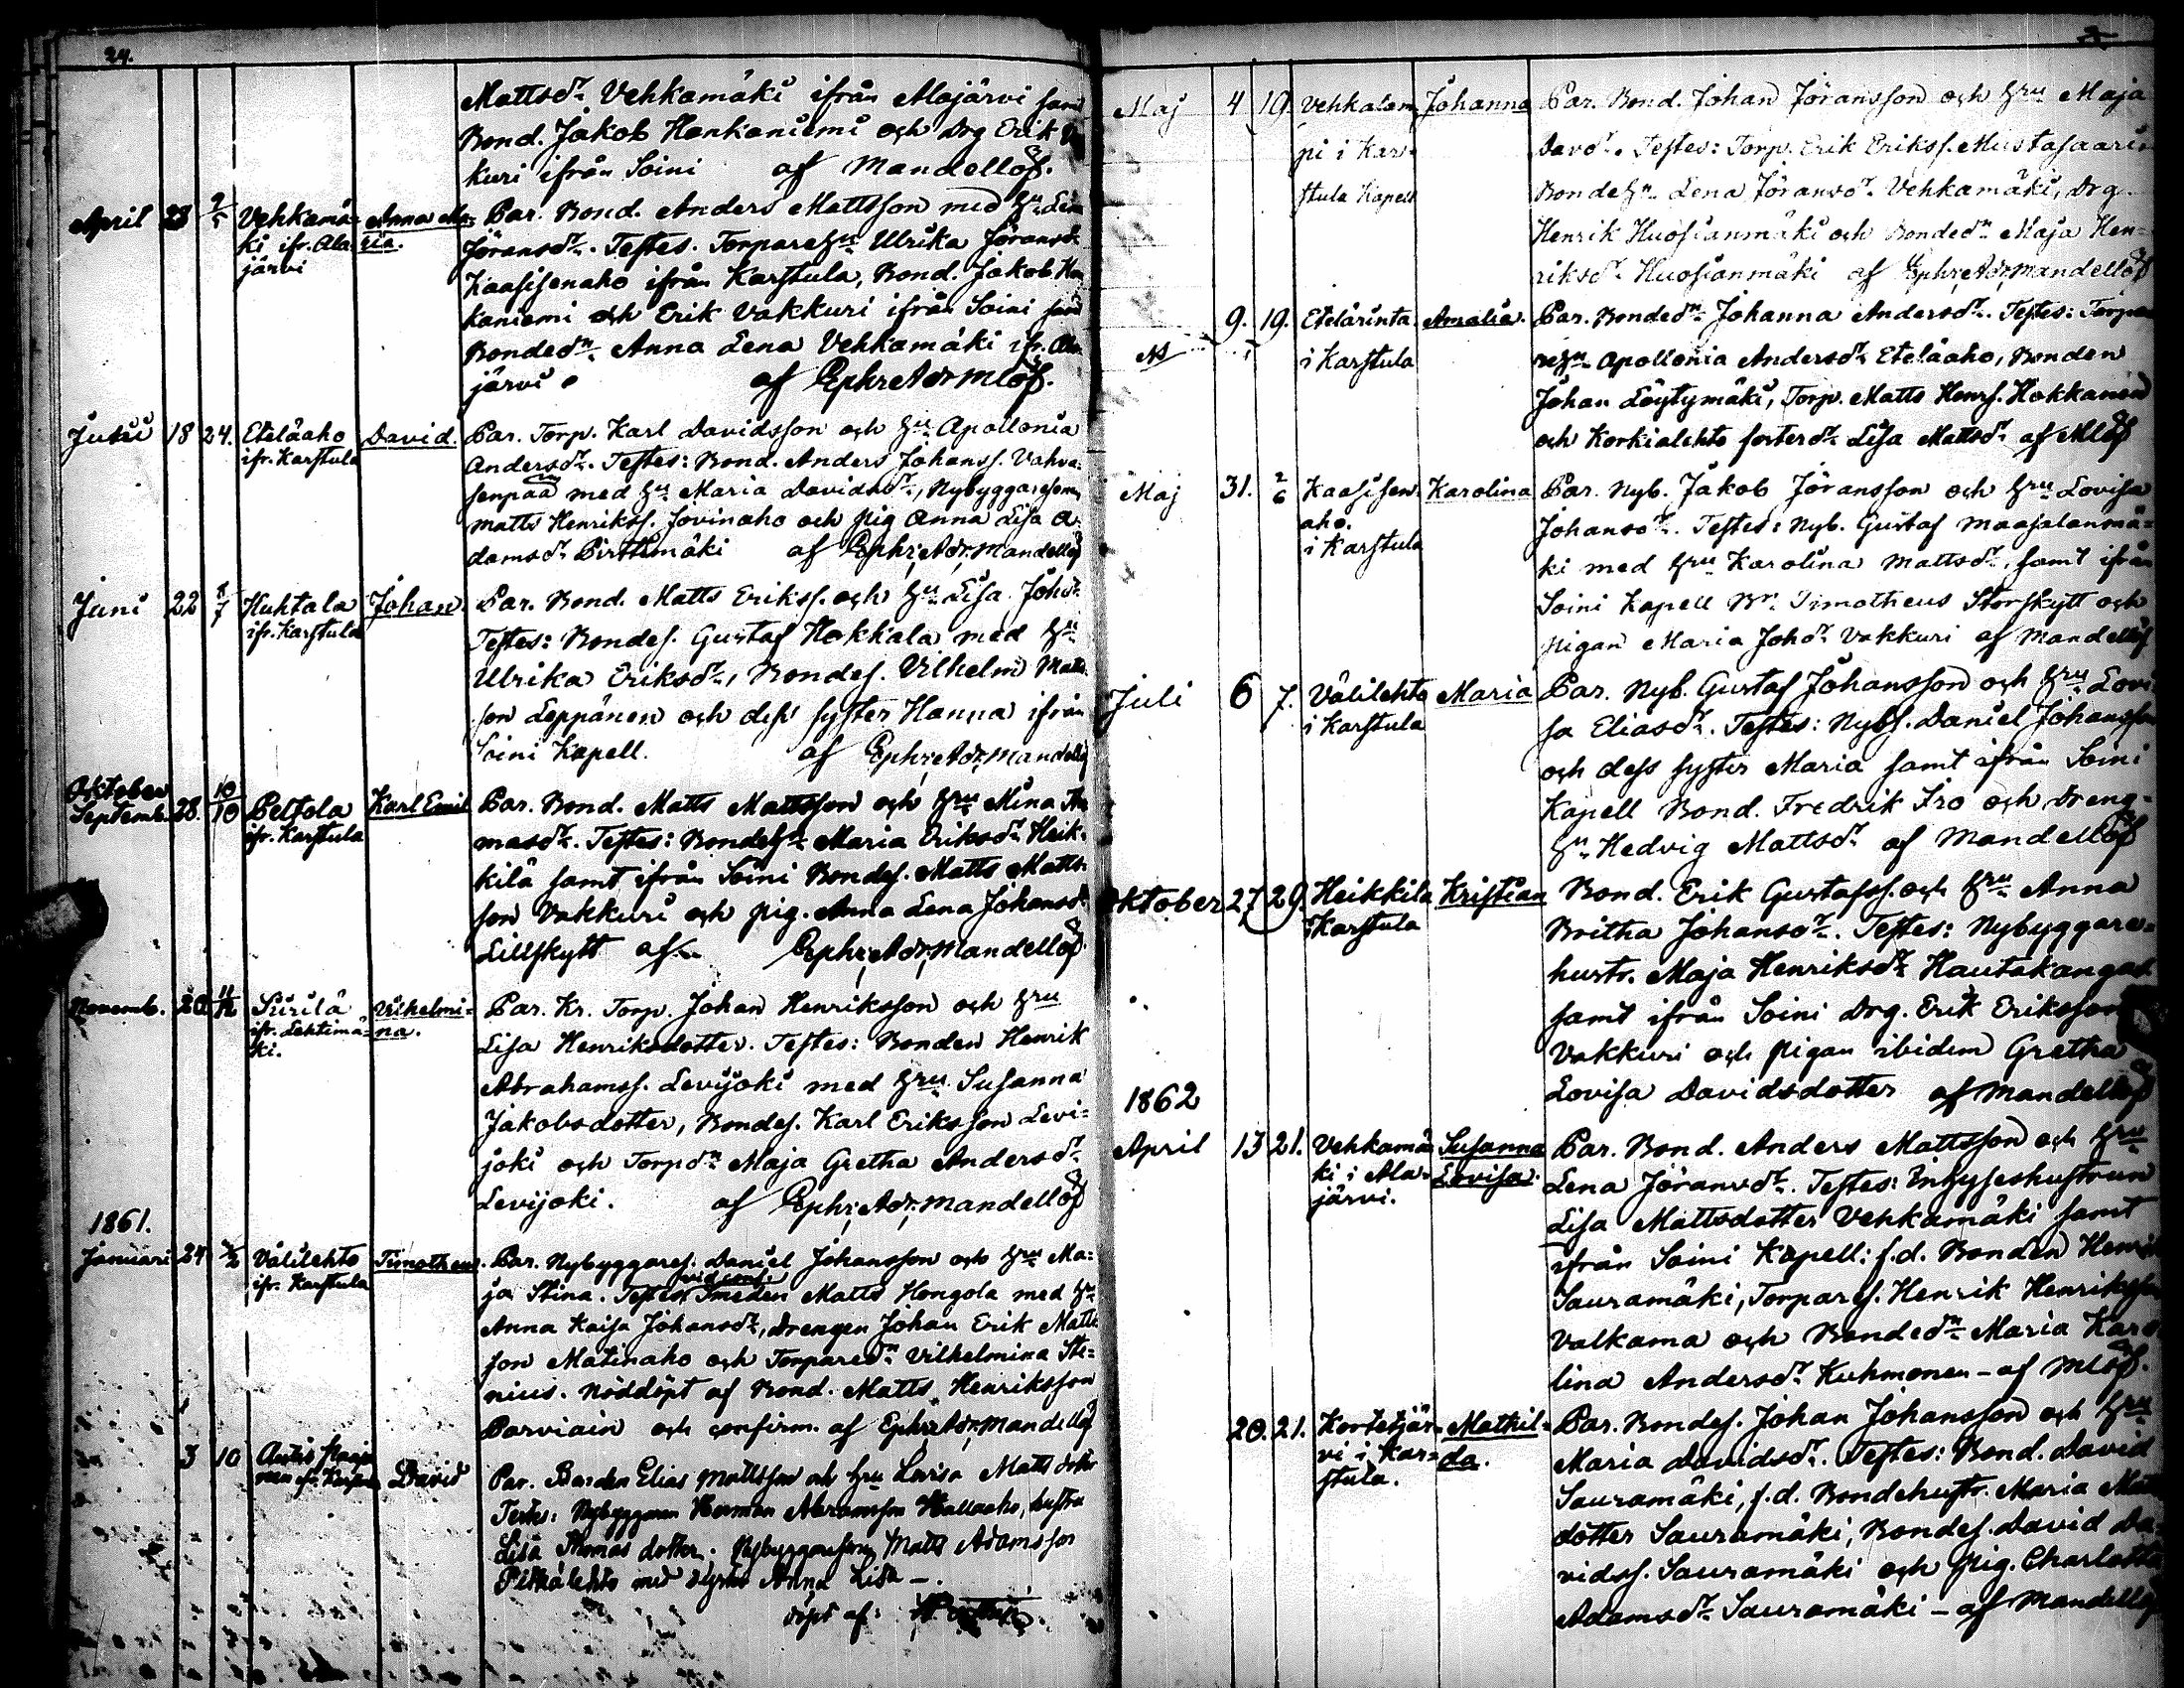 24.
Mattsdr. Vehkamäki ifrån Alajärvi samt
Bond. Jakob Hankaniemi och Drg Erik
kuri ifrån Soini af Mandellöf.
April 28 2/5 Vehkamä- Anna Ma- Par. Bond. Anders Mattsson med hu Lena
ki ifr. Ala- ria. Jöransdr. Testes. Torparehu Ulrika Jöransdr
järvi Kaasisenaho ifrån Karstula, Bond. Jakob Han
kaniemi och Erik Vakkuri ifrån Soini samt
Bondedn Anna Lena Vehkamäki ifr. Ala
järvi. af Ephr: Adr: Mlöf.
18 24. Eteläaho David. Par. Torp. Karl Davidsson och hu Apollonia
ifr. Karstula Andersdr. Testes: Bond. Anders Johanss. Vahva-
senpää med hu Maria Davidsdr, Nybyggaresonen
Matts Henrikss. Jovinaho och pig Anna Lisa A-
damsdr Pirttimäki af Ephr: Adr: Mandellöf
Juni 22 Huhtala Johan. Par. Bond. Matts Erikss. och hu Lisa Johdr.
ifr. Karstula Testes: Bondes. Gustaf Hokkala med hu
Ulrika Eriksdr, Bondes. Vilhelm Matts
son Leppänen och dess syster Hanna ifrån
Soini Kapell. af Ephr: Adr: Mandellöf
Oktober
Septemb. 28. 10/10 Peltola Karl Emil Par. Bond. Matts Mattsson och hru Mina Tho
ifr. Karstula masdr. Testes: Bondehu Maria Eriksdr Heik-
kilä samt ifrån Soini Bondes. Matts Matts-
son Vakkuri och pig. Anna Lena Johansdr
Lillskytt af Ephr: Adr: Mandellöf
Novemb. 20. 11/12 Siirilä Vilhelmi- Par. Kr. Torp. Johan Henriksson och hru
ifr. Lehtimä- na. Lisa Henriksdotter. Testes: Bonden Henrik
ki. Abrahamss. Levijoki med hru Susanna
Jakobsdotter, Bondes. Karl Eriksson Levi-
joki och Torpdn Maja Gretha Andersdr
Levijoki. af Ephr: Adr: Mandellöf
1861.
Januari 24 Välilehto Timotheus. Par. Nybyggares. Daniel Johansson och hru Ma-
ifr. Karstula ja Stina. Testes vid conf: Smeden Matts Hongola med hu
Anna Kaisa Johansdr, Drengen Johan Erik Matts
son Matinaho och Torparedn Vilhelmina Ste-
nius. Nöddöpt af Bond. Matts Henriksson
Parviain och confirm. af Ephr: Adr: Mandellöf
3 10 David Par. Bonden Elias Mattsson och hru Lovisa Mattsdotter
Testes: Nybyggaren Herman Abramsson Hallaaho, hustru
Lisa Thomasdotter; Nybyggaresonen Matts Adamsson
Pitkälehto med syster Anna Lisa —.
döpt af:
Maj 4 19. Vehkalam- Johanna Par. Bond. Johan Jöransson och hru Maja
pi i Kar- Davdr. Testes: Torp. Erik Erikss. Mustasaari,
stula Kapell Bondehu Lena Jöransdr Vehkamäki, Drg
Henrik Huosianmäki och Bondedn Maja Hen-
riksdr Huosianmäki af Ephr: Adr: Mandellöf
9. 19. Etelärinta Amalia. Par. Bondedn Johanna Andersdr. Testes: Torpa
i Karstula rehu Apollonia Andersdr Eteläaho, Bonden
Johan Löytymäki, Torp. Matts Henrs. Hokkanen
och Korkialehto fosterdr Lisa Mattsdr af Mlöf
Maj 31. 2/6 Kaasisen- Karolina Par. Nyb. Jakob Jöransson och hru Lovisa
aho. Johansdr. Testes: Nyb. Gustaf Maasalanmä-
i Karstula ki med hru Karolina Mattsdr, samt ifrån
Soini Kapell Bn. Timotheus Storskytt och
pigan Maria Johdr Vakkuri af Mandellöf
Juli 6 7. Välilehto Maria Par. Nyb. Gustaf Johansson och hru Lovi
i Karstula sa Eliasdr. Testes: Nybs. Daniel Johansson
och dess syster Maria samt ifrån Soini
Kapell Bond. Fredrik Iro och Dreng-
hu Hedvig Mattsdr af Mandellöf
Oktober 27 29. Heikkilä Kristian Bond. Erik Gustafss. och hru Anna
i Karstula Britha Johansdr. Testes: Nybyggare-
hustr. Maja Henriksdr Hautakangas
samt ifrån Soini Drg. Erik Eriksson
Vakkuri och pigan ibidem Gretha
Lovisa Davidsdotter af Mandellöf
1862
April 13 21. Vehkamä- Susanna Par. Bond. Anders Mattsson och hru
ki i Ala- Lovisa. Lena Jöransdr. Testes: Inhyseshustrun
järvi. Lisa Mattsdotter Vehkamäki samt
ifrån Soini Kapell: f.d. Bonden Henrik
Sauramäki, Torpares. Henrik Henriksson
Valkama och Bondedn Maria Karo
lina Andersdr Kuhmonen - af Mlöf.
20. 21. Kortetjär- Mathil- Par. Bondes. Johan Johansson och hru
vi i Kar- da. Maria Davidsdr. Testes: Bond. David
stula. Sauramäki, f.d. Bondehustr. Maria Matts
dotter Sauramäki, Bondes. David Da-
vidss. Sauramäki och pig. Charlotta
Adamsdr Sauramäki - af Mandellöf